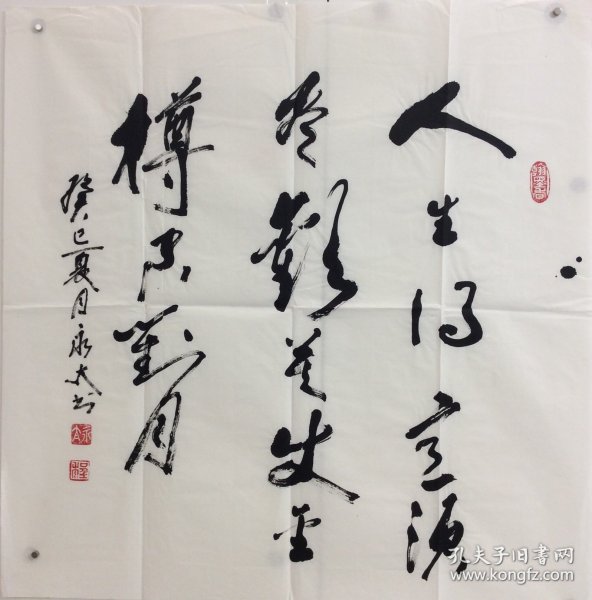 人生得意须
尽欢莫使金
樽空對月
癸巳夏月永大书
孔夫子旧书网
www.kongfz.com